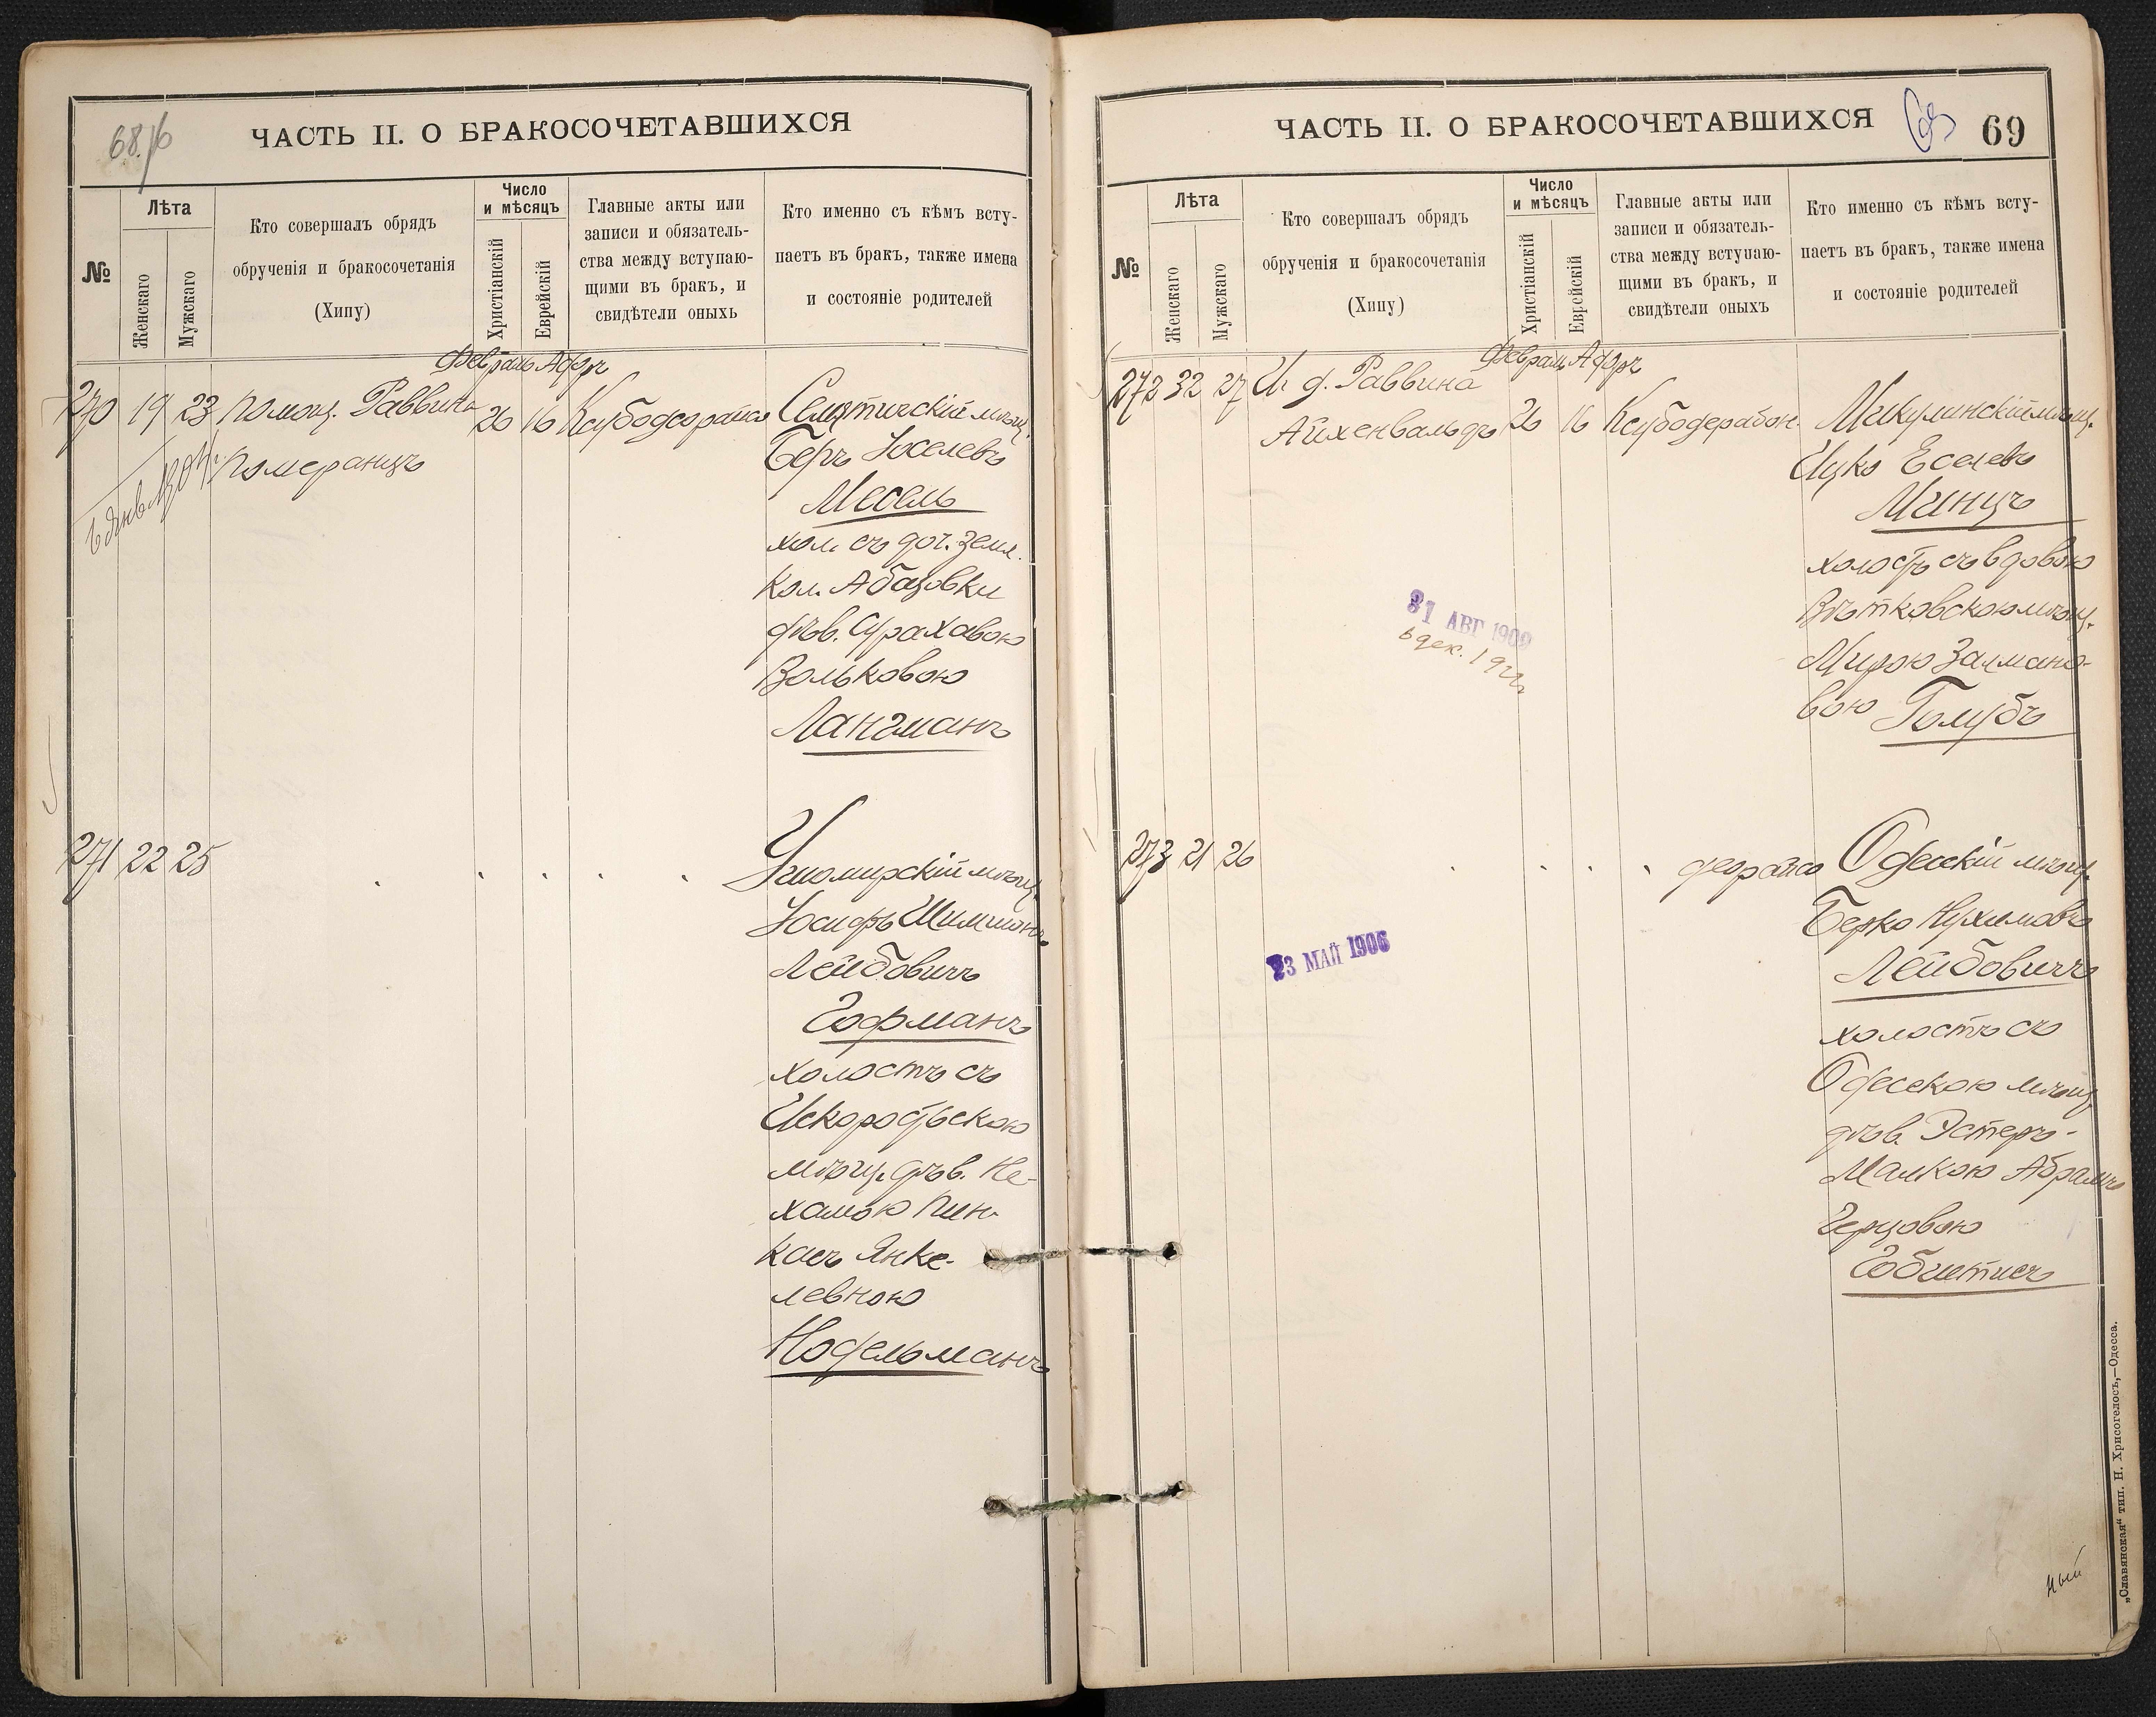 68.
ЧАСТЬ II. О БРАКОСОЧЕТАВШИХСЯ
№
Лѣта
Женскаго
Мужскаго
Кто совершалъ обрядъ
обрученія и бракосочетанія
(Хипу)
Число
и мѣсяцъ
Христіанскій
Еврейскій
Главные акты или
записи и обязатель-
ства между вступаю-
щими въ бракъ, и
свидѣтели оныхъ
Кто именно съ кѣмъ всту-
паетъ въ бракъ, также имена
и состояніе родителей
Февраль Адаръ
270 19 23 Помощ. Раввина 26 16 Ксубодеорайсо
Померанцъ
Селятичскій мѣщ.
Беръ Іоселевъ
Месель
хол. съ доч. земл.
Кол. Абазовки
дѣв.
Вольковою
Лангманъ
271 22 25
Ушомирскій мѣщ.
Іосифъ Шимшонъ
Лейбовичъ
Гофманъ
холостъ съ
Искоростьскою
мѣщ. дѣв. Не-
хамою Пин-
касъ Янке-
левною
Нодельманъ
ЧАСТЬ II. О БРАКОСОЧЕТАВШИХСЯ
69
№
Лѣта
Женскаго
Мужскаго
Кто совершалъ обрядъ
обрученія и бракосочетанія
(Хипу)
Число
и мѣсяцъ
Христіанскій
Еврейскій
Главные акты или
записи и обязатель-
ства между вступаю-
щими въ бракъ, и
свидѣтели оныхъ
Кто именно съ кѣмъ всту-
паетъ въ бракъ, также имена
и состояніе родителей
Февраль Адаръ
272 32 27 И. д. Раввина
Айхенвальдъ 26 16 Ксубодерабон.
Микулинскій мѣщ.
Ицко Еселевъ
Минцъ
холостъ съ вдовою
Вѣтковскою мѣщ.
Мирою Залмано-
вою Голубъ
31 АВГ 1909
6 дек. 1922
273 21 26 деорайсо
Одесскій мѣщ.
Берко Нухимовъ
Лейбовичъ
холостъ съ
Одесскою мѣщ.
дѣв. Эстеръ-
Малкою Абрамъ
Герцовою
23 МАЙ 1906
ный
„Славянская“ тип. Н. Хрисогелосъ,—Одесса.